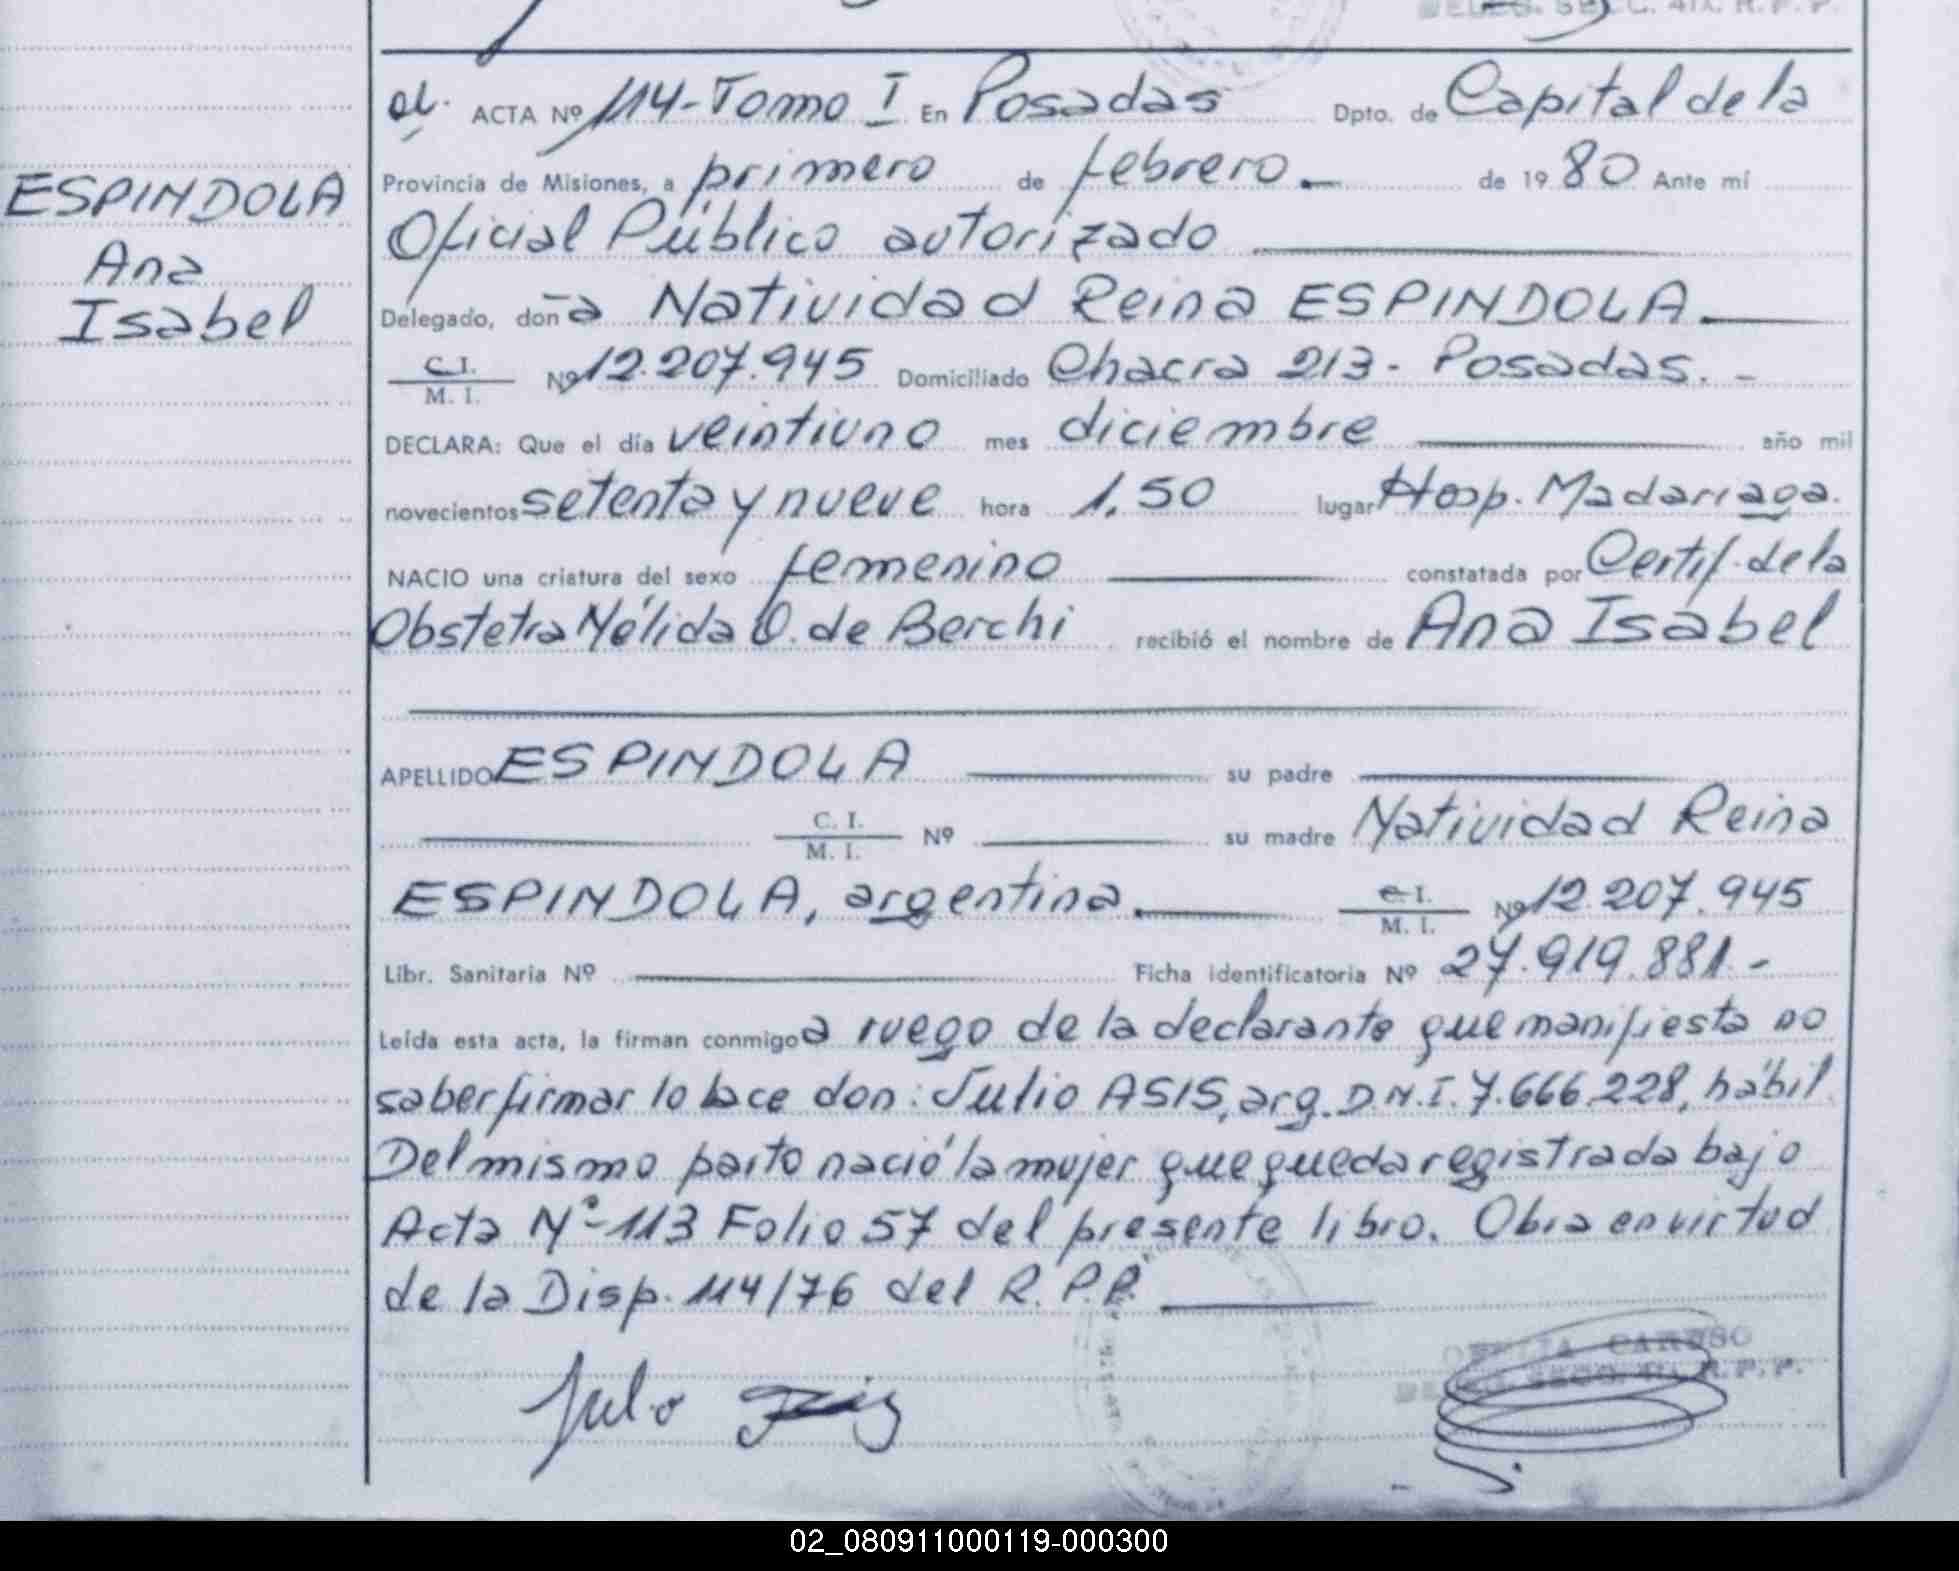 DELEG. SECC. 4ta. R.P.P.
ESPINDOLA
Ana
Isabel
ACTA Nº 114-Tomo I En Posadas Dpto. de Capital de la
Provincia de Misiones, a primero de febrero.- de 1980 Ante mí
Oficial Público autorizado
Delegado, doña Natividad Reina ESPINDOLA.
C. I. / M. I. Nº 12.207.945 Domiciliado Chacra 213- Posadas. -
DECLARA: Que el día veintiuno mes diciembre año mil
novecientos setenta y nueve hora 1.50 lugar Hosp. Madariaga.
NACIO una criatura del sexo femenino constatada por Certif. de la
Obstetra Nélida O. de Berchi recibió el nombre de Ana Isabel
APELLIDO ESPINDOLA su padre
C. I. / M. I. Nº su madre Natividad Reina
ESPINDOLA, argentina. C. I. / M. I. Nº 12.207.945
Libr. Sanitaria Nº Ficha identificatoria Nº 27.919.881.-
Leída esta acta, la firman conmigo a ruego de la declarante que manifiesta no
saber firmar lo hace don: Julio ASIS, arg. D.N.I. 7.666.228, hábil
Del mismo parto nació la mujer que queda registrada bajo
Acta Nº-113 Folio 57 del presente libro. Obra en virtud
de la Disp. 114/76 del R.P.P.
OFELIA CARUSO
DELEG. SECC. 4ta. R.P.P.
Julio
02_080911000119-000300